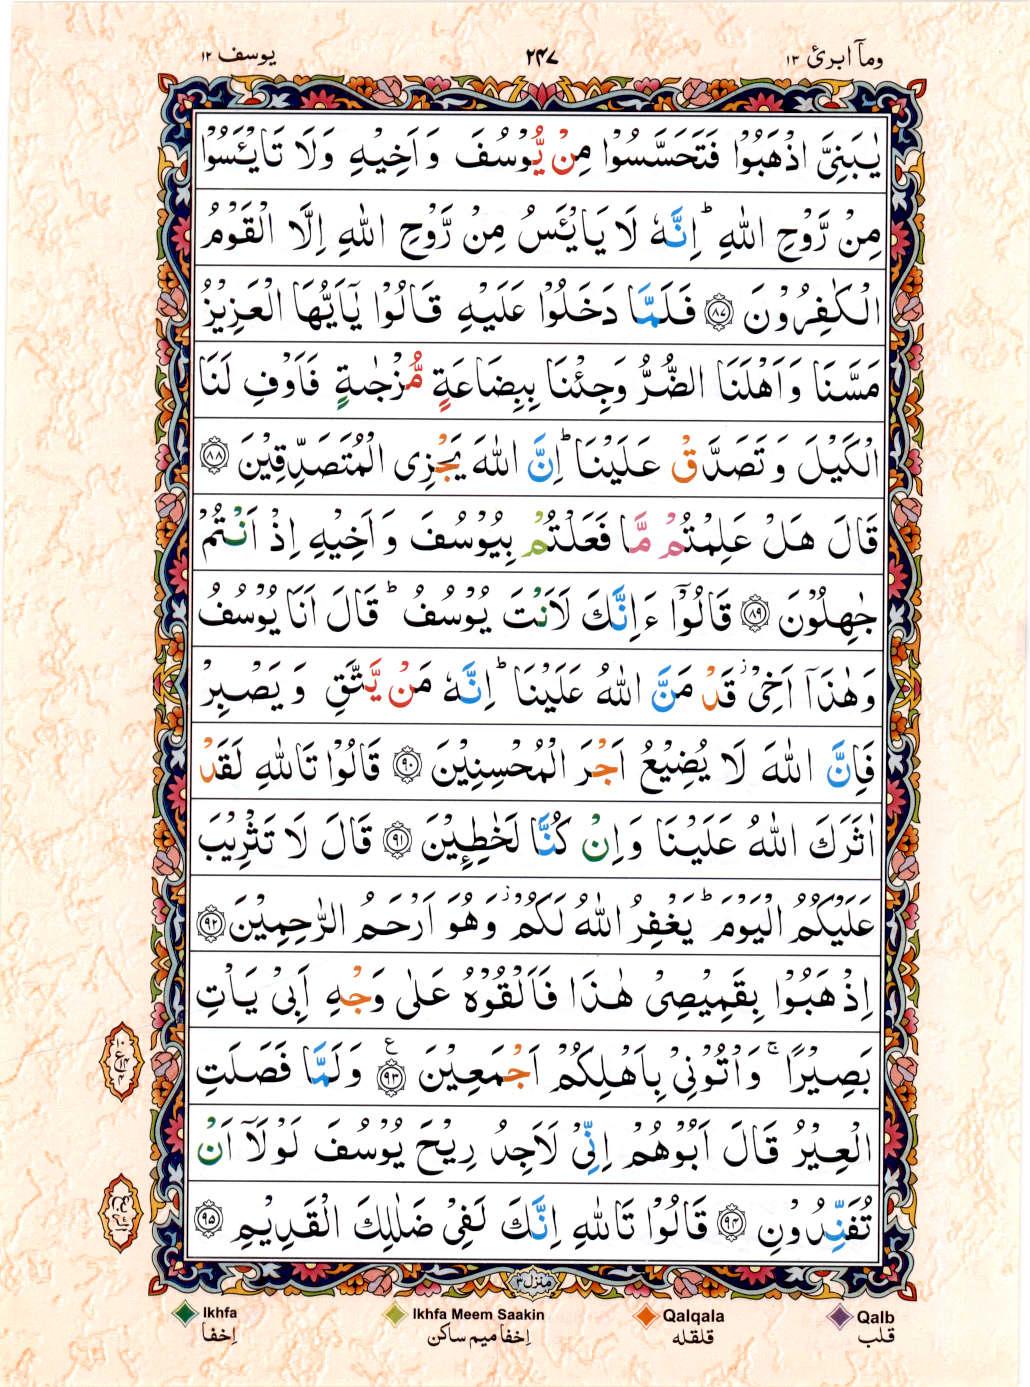 وماۤ ابرئ ۱۳
۲۴۷
یوسف ۱۲
یٰبَنِیَّ اذْهَبُوْا فَتَحَسَّسُوْا مِنْ یُّوْسُفَ وَاَخِیْهِ وَلَا تَایْـَٔسُوْا
مِنْ رَّوْحِ اللّٰهِ ؕ اِنَّهٗ لَا یَایْـَٔسُ مِنْ رَّوْحِ اللّٰهِ اِلَّا الْقَوْمُ
الْكٰفِرُوْنَ ﴿۸۷﴾ فَلَمَّا دَخَلُوْا عَلَیْهِ قَالُوْا یٰۤاَیُّهَا الْعَزِیْزُ
مَسَّنَا وَاَهْلَنَا الضُّرُّ وَجِئْنَا بِبِضَاعَةٍ مُّزْجٰىةٍ فَاَوْفِ لَنَا
الْكَیْلَ وَتَصَدَّقْ عَلَیْنَا ؕ اِنَّ اللّٰهَ یَجْزِی الْمُتَصَدِّقِیْنَ ﴿۸۸﴾
قَالَ هَلْ عَلِمْتُمْ مَّا فَعَلْتُمْ بِیُوْسُفَ وَاَخِیْهِ اِذْ اَنْتُمْ
جٰهِلُوْنَ ﴿۸۹﴾ قَالُوْۤا ءَاِنَّكَ لَاَنْتَ یُوْسُفُ ؕ قَالَ اَنَا یُوْسُفُ
وَهٰذَاۤ اَخِیْ ؗ قَدْ مَنَّ اللّٰهُ عَلَیْنَا ؕ اِنَّهٗ مَنْ یَّتَّقِ وَیَصْبِرْ
فَاِنَّ اللّٰهَ لَا یُضِیْعُ اَجْرَ الْمُحْسِنِیْنَ ﴿۹۰﴾ قَالُوْا تَاللّٰهِ لَقَدْ
اٰثَرَكَ اللّٰهُ عَلَیْنَا وَاِنْ كُنَّا لَخٰطِـِٕیْنَ ﴿۹۱﴾ قَالَ لَا تَثْرِیْبَ
عَلَیْكُمُ الْیَوْمَ ؕ یَغْفِرُ اللّٰهُ لَكُمْ ؗ وَهُوَ اَرْحَمُ الرّٰحِمِیْنَ ﴿۹۲﴾
اِذْهَبُوْا بِقَمِیْصِیْ هٰذَا فَاَلْقُوْهُ عَلٰی وَجْهِ اَبِیْ یَاْتِ
بَصِیْرًا ۚ وَاْتُوْنِیْ بِاَهْلِكُمْ اَجْمَعِیْنَ ﴿۹۳﴾ ع وَلَمَّا فَصَلَتِ
الْعِیْرُ قَالَ اَبُوْهُمْ اِنِّیْ لَاَجِدُ رِیْحَ یُوْسُفَ لَوْلَاۤ اَنْ
تُفَنِّدُوْنِ ﴿۹۴﴾ قَالُوْا تَاللّٰهِ اِنَّكَ لَفِیْ ضَلٰلِكَ الْقَدِیْمِ ﴿۹۵﴾
منزل ۳
Ikhfa
Ikhfa Meem Saakin
Qalqala
Qalb
اِخفا
اِخفا میم ساکن
قلقله
قلب